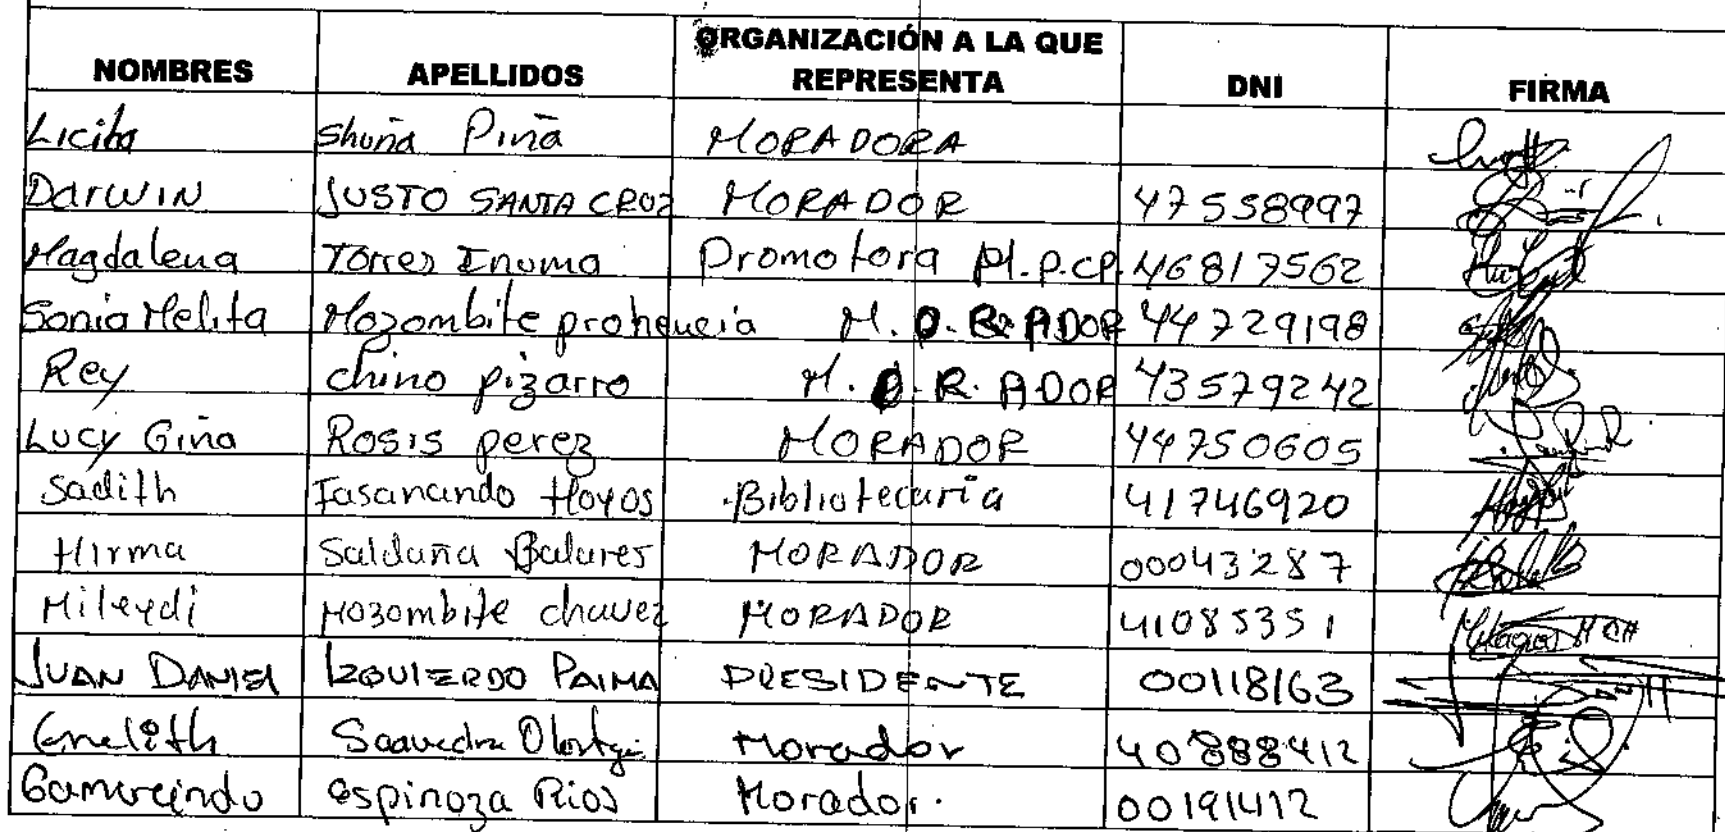 NOMBRES APELLIDOS ORGANIZACIÓN A LA QUE REPRESENTA DNI FIRMA
Licita Shuña Piña MORADORA
Darwin JUSTO SANTA CRUZ MORADOR 47558997
Magdalena Torres Inuma Promotora M.P.CP. 46817562
Sonia Melita Mozombite prohencia M.O.R.ADOR 44729198
Rey chino pizarro M.O.R.ADOR 43579242
Lucy Giña Rosis perez MORADOR 44750605
Sadith Fasanando Hoyos Bibliotecaria 41746920
Hirma Saldaña Balares MORADOR 00043287
Mileydi Mozombite chavez MORADOR 41085351 Milagros MCH
JUAN DANIEL IZQUIERDO PAIMA PRESIDENTE 00118163
Enelith Saavedra Morador 40888412
Gamercindo espinoza Rios Morador. 00191412